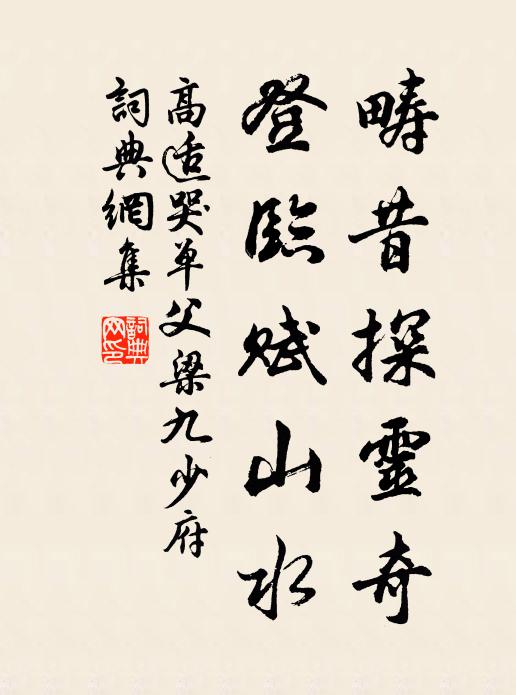 疇昔探靈奇
登臨賦山水
高适哭单父梁九少府
詞典網集
詞典網印